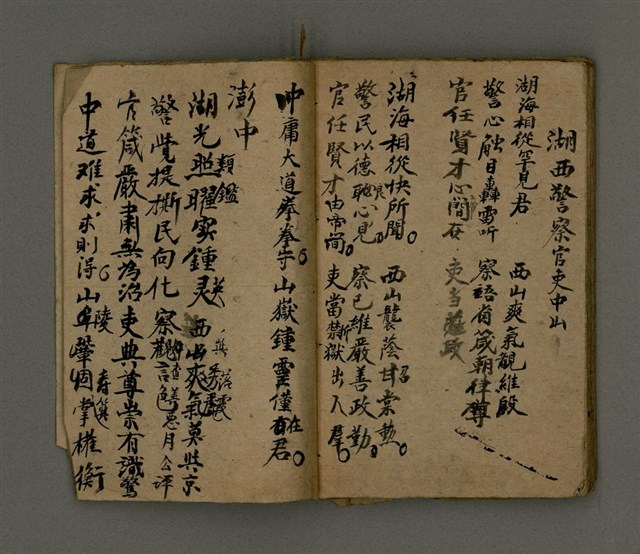 湖西警察官吏中山
湖海相從罕見君 西山爽氣觀維殷
警心触目轟雷听 察語省箴朝律尊
官任賢才心簡在 吏当蒞政
湖海相從快所聞 西山襲蔭甘棠勲
警民以德聰心見 察己維嚴善政勤
官任賢才由帝簡 吏當禁獄出入羣
中庸大道拳拳守 山嶽鍾靈僅在君
澎中
湖光照耀實鍾灵 西山爽氣莫與京
警覺提撕民向化 察觀言色善惡月公評
官箴嚴肅無為治 吏典尊崇有識驚
中道难求求則得 山陵鞏固掌權衡